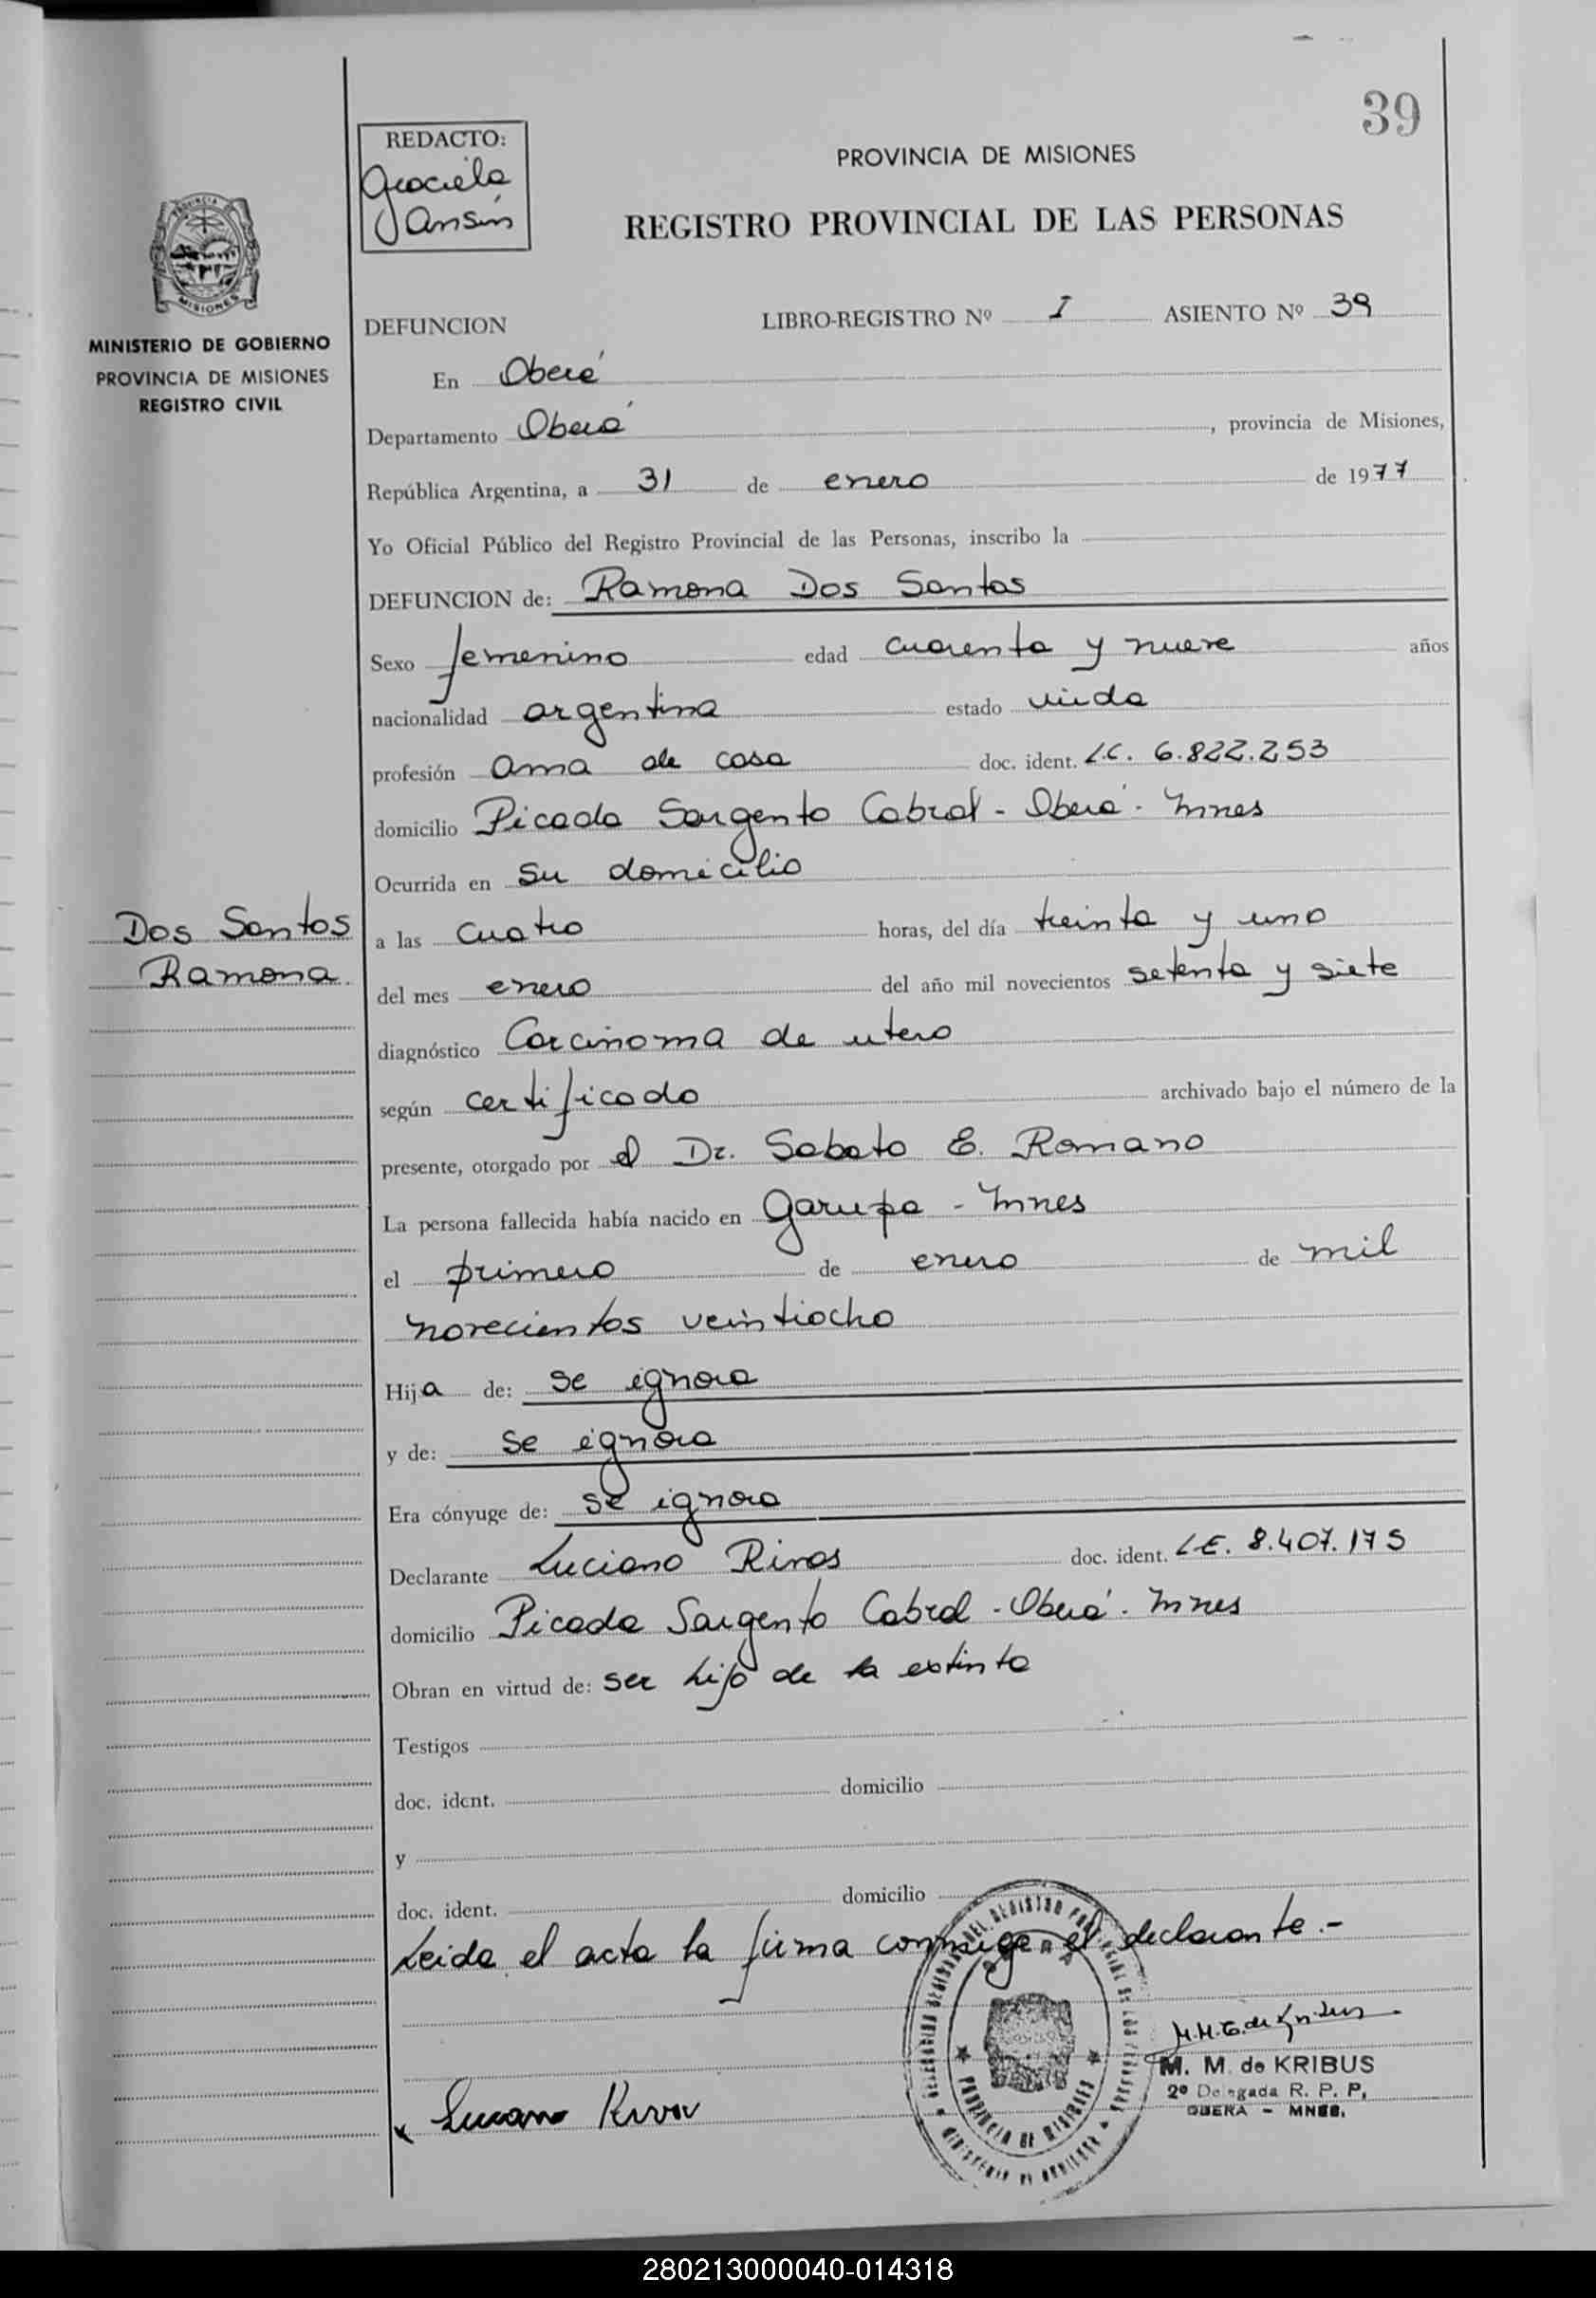 39
REDACTO:
Graciela
Jansin
PROVINCIA DE MISIONES
REGISTRO PROVINCIAL DE LAS PERSONAS
MISIONES
MINISTERIO DE GOBIERNO
PROVINCIA DE MISIONES
REGISTRO CIVIL
DEFUNCION LIBRO-REGISTRO Nº I ASIENTO Nº 39
En Oberá
Departamento Oberá, provincia de Misiones,
República Argentina, a 31 de enero de 1977
Yo Oficial Público del Registro Provincial de las Personas, inscribo la
DEFUNCION de: Ramona Dos Santos
Sexo femenino edad cuarenta y nueve años
nacionalidad argentina estado viuda
profesión ama de casa doc. ident. L.C. 6.822.253
domicilio Picada Sargento Cabral - Oberá - Mnes
Ocurrida en su domicilio
Dos Santos
Ramona.
a las cuatro horas, del día treinta y uno
del mes enero del año mil novecientos setenta y siete
diagnóstico Carcinoma de utero
según certificado archivado bajo el número de la
presente, otorgado por el Dr. Sabato E. Romano
La persona fallecida había nacido en Garupa - Mnes
el primero de enero de mil
novecientos veintiocho
Hija de: se ignora
y de: se ignora
Era cónyuge de: se ignora
Declarante Luciano Rivas doc. ident. L.E. 8.407.175
domicilio Picada Sargento Cabral - Oberá - Mnes
Obran en virtud de: ser hijo de la extinta
Testigos
doc. ident. domicilio
y
doc. ident. domicilio
Leida el acta la firma conmigo el declarante.-
PROVINCIA DE MISIONES
M. M. de KRIBUS
2º Delegada R. P. P.
OBERA - MNES.
Luciano Rivas
280213000040-014318